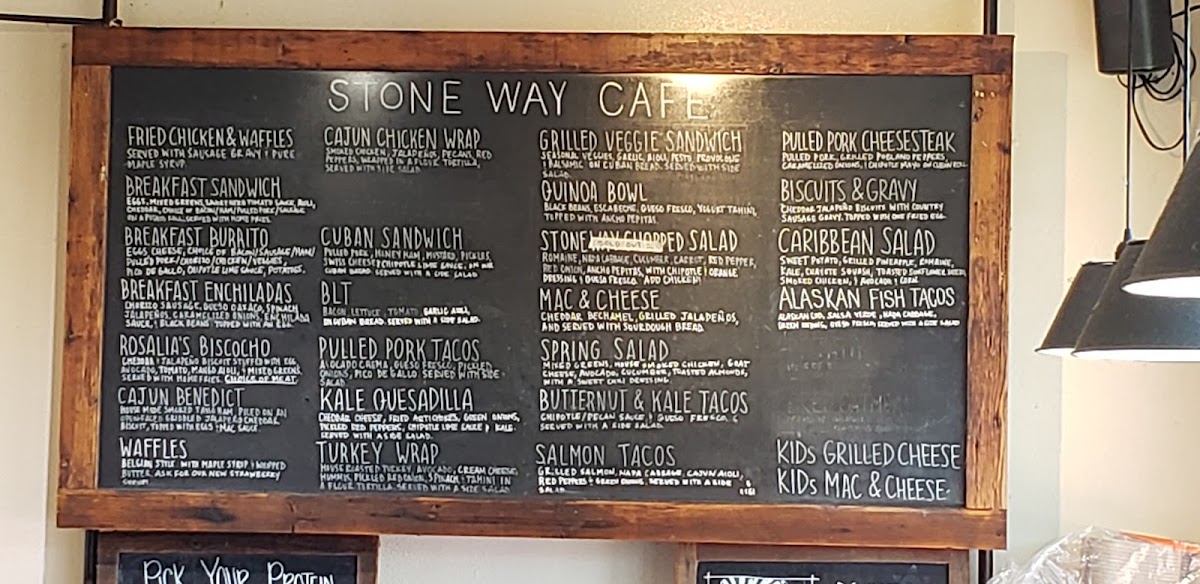 STONE WAY CAFE
FRIED CHICKEN & WAFFLES
SERVED WITH SAUSAGE GRAVY & PURE
MAPLE SYRUP
BREAKFAST SANDWICH
EGGS, MIXED GREENS, TOMATO SAUCE, AIOLI,
CHEDDAR, CHOICE OF BACON/HAM/PULLED PORK/SAUSAGE
ON A POTATO ROLL. SERVED WITH HOME FRIES
BREAKFAST BURRITO
EGGS CHEESE, CHOICE OF BACON/SAUSAGE/HAM/
PULLED PORK/CHORIZO/CHICKEN/VEGGIES,
PICO DE GALLO, CHIPOTLE LIME SAUCE, POTATOES.
BREAKFAST ENCHILADAS
CHORIZO SAUSAGE, QUESO OAXACA, SPINACH,
JALAPEÑOS, CARAMELIZED ONIONS, ENCHILADA
SAUCE, & BLACK BEANS TOPPED WITH AN EGG.
ROSALIA'S BISCOCHO
CHEDDAR & JALAPEÑO BISCUIT STUFFED WITH EGG,
AVOCADO, TOMATO, MANGO AIOLI, & MIXED GREENS.
SERVED WITH HOMEFRIES. CHOICE OF MEAT
CAJUN BENEDICT
HOUSE MADE SMOKED TASSO HAM, PILED ON AN
GRIDDLED JALAPEÑO CHEDDAR
BISCUIT, TOPPED WITH EGGS & MAC SAUCE.
WAFFLES
BELGIAN STYLE WITH MAPLE SYRUP & WHIPPED
BUTTER. ASK FOR OUR NEW STRAWBERRY
CAJUN CHICKEN WRAP
SMOKED CHICKEN, JALAPEÑOS, PECANS, RED
PEPPERS, WRAPPED IN A FLOUR TORTILLA,
SERVED WITH SIDE SALAD
CUBAN SANDWICH
PULLED PORK, HONEY HAM, MUSTARD, PICKLES,
SWISS CHEESE & CHIPOTLE LIME SAUCE, ON
CUBAN BREAD. SERVED WITH A SIDE SALAD
BLT
BACON, LETTUCE, TOMATO, GARLIC AIOLI,
ON CUBAN BREAD. SERVED WITH A SIDE SALAD.
PULLED PORK TACOS
AVOCADO CREMA, QUESO FRESCO, PICKLED
ONIONS, PICO DE GALLO. SERVED WITH SIDE
SALAD
KALE QUESADILLA
CHEDDAR CHEESE, FRIED ARTICHOKES, GREEN ONIONS,
PICKLED RED PEPPERS, CHIPOTLE LIME SAUCE & KALE.
SERVED WITH A SIDE SALAD.
TURKEY WRAP
HOUSE ROASTED TURKEY, AVOCADO, CREAM CHEESE,
HUMMUS, PICKLED RED ONION, SPINACH & TAHINI IN
A FLOUR TORTILLA. SERVED WITH A SIDE SALAD
GRILLED VEGGIE SANDWICH
SEASONAL VEGGIES, GARLIC, AIOLI, PESTO, PROVOLONE
& BALSAMIC ON CUBAN BREAD. SERVED WITH SIDE
SALAD.
QUINOA BOWL
BLACK BEANS, ESCABECHE, QUESO FRESCO, YOGURT TAHINI,
TOPPED WITH ANCHO PEPITAS.
STONEWAY CHOPPED SALAD
ROMAINE, NAPA CABBAGE, CUCUMBER, CARROT, RED PEPPER,
RED ONION, ANCHO PEPITAS, WITH CHIPOTLE & ORANGE
DRESSING & QUESO FRESCO. ADD CHICKEN!
MAC & CHEESE
CHEDDAR BECHAMEL, GRILLED JALAPEÑOS,
AND SERVED WITH SOURDOUGH BREAD.
SPRING SALAD
MIXED GREENS, HOUSE SMOKED CHICKEN, GOAT
CHEESE, AVOCADO, CUCUMBER, TOASTED ALMONDS,
WITH A SWEET CHILI DRESSING.
BUTTERNUT & KALE TACOS
CHIPOTLE/PECAN SAUCE & QUESO FRESCO.
SERVED WITH A SIDE SALAD
SALMON TACOS
GRILLED SALMON, NAPA CABBAGE, CAJUN AIOLI,
RED PEPPERS & GREEN ONIONS. SERVED WITH A SIDE
SALAD
PULLED PORK CHEESESTEAK
PULLED PORK, GRILLED POBLANO PEPPERS,
CARAMELIZED ONIONS, & CHIPOTLE MAYO ON CUBAN ROLL
BISCUITS & GRAVY
CHEDDAR JALAPEÑO BISCUITS WITH COUNTRY
SAUSAGE GRAVY. TOPPED WITH ONE FRIED EGG.
CARIBBEAN SALAD
SWEET POTATO, GRILLED PINEAPPLE, ROMAINE,
KALE, CHAYOTE SQUASH, TOASTED SUNFLOWER SEEDS
SMOKED CHICKEN, & AVOCADO & CORN
ALASKAN FISH TACOS
ALASKAN COD, SALSA VERDE, NAPA CABBAGE,
GREEN ONIONS, QUESO FRESCO SERVED WITH A SIDE SALAD
KIDs GRILLED CHEESE
KIDs MAC & CHEESE
PICK YOUR PROTEIN